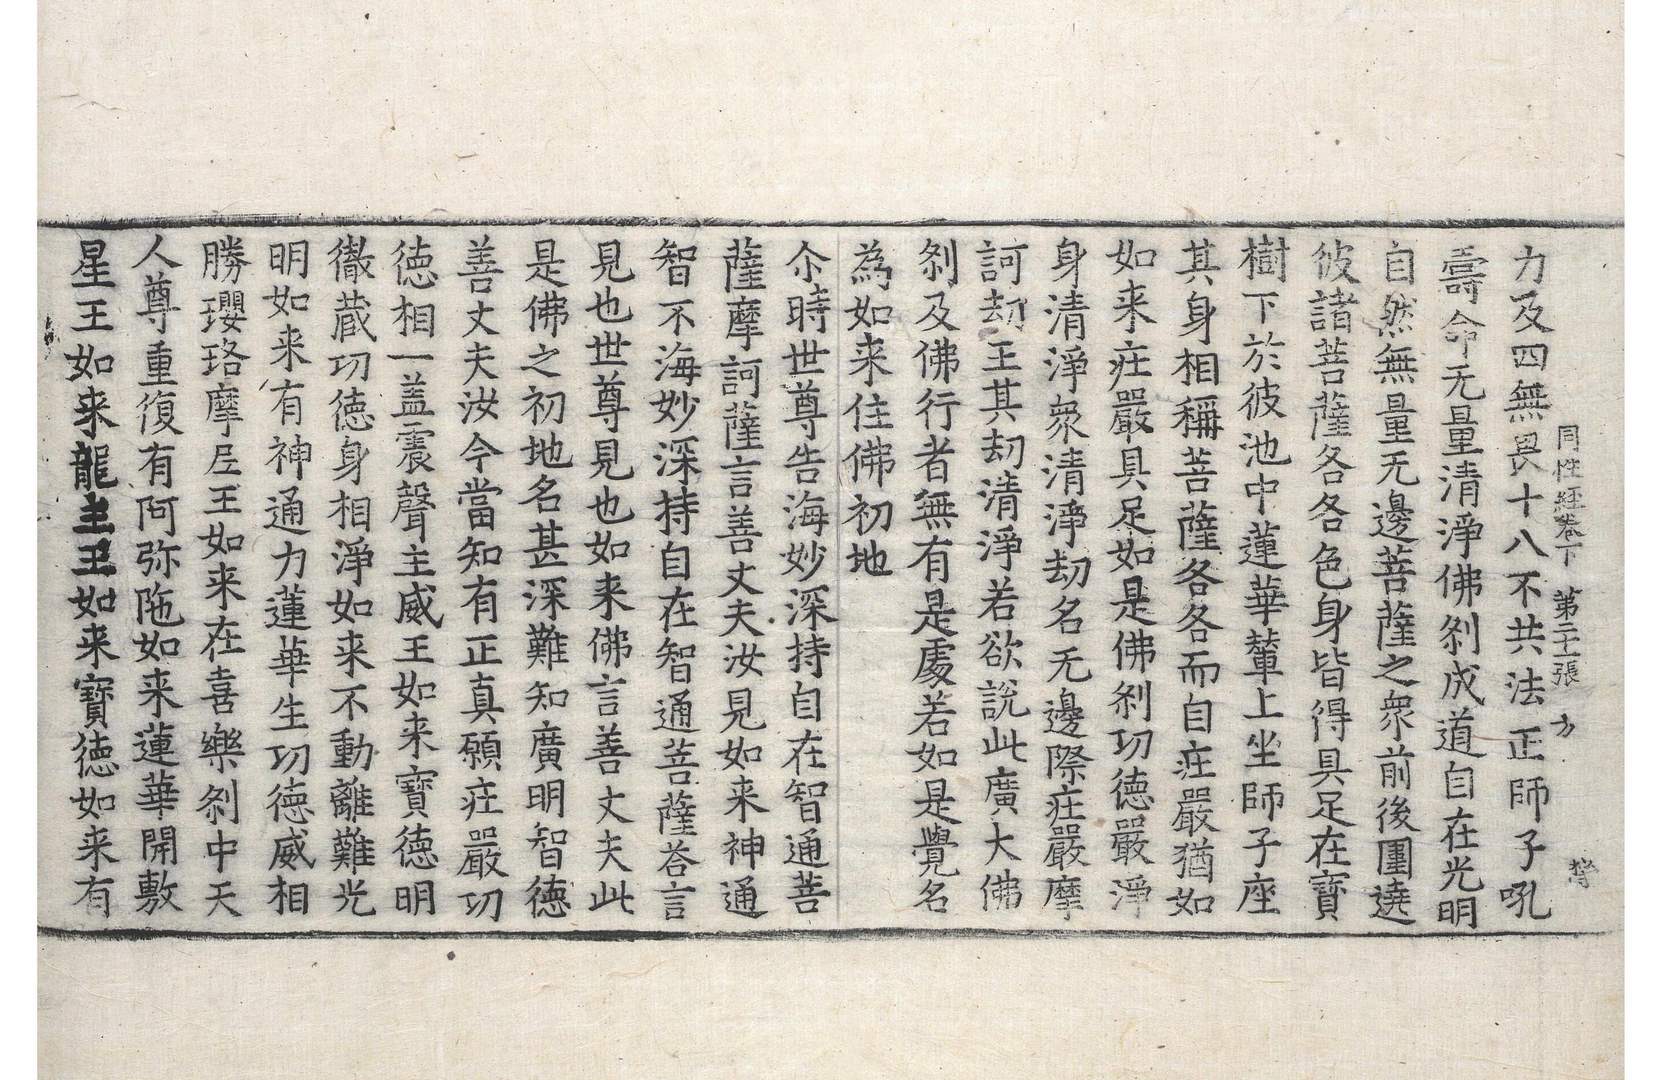 同性經卷下　第二十張　方
力及四無畏十八不共法正師子吼
壽命无量清淨佛刹成道自在光明
自然無量无邊菩薩之衆前後圍遶
彼諸菩薩各各色身皆得具足在寳
樹下於彼池中蓮華輦上坐師子座
其身相稱菩薩各各而自庄嚴猶如
如来庄嚴具足如是佛刹功德嚴淨
身清淨衆清淨劫名无邊際庄嚴摩
訶劫王其劫清淨若欲說此廣大佛
刹及佛行者無有是處若如是覺名
為如来住佛初地
尒時世尊告海妙深持自在智通菩
薩摩訶薩言善丈夫汝見如来神通
智不海妙深持自在智通菩薩荅言
見也世尊見也如来佛言善丈夫此
是佛之初地名甚深難知廣明智德
善丈夫汝今當知有正真願庄嚴功
德相一盖震聲主威王如来寳德明
徹蔵功德身相淨如来不動離難光
明如来有神通力蓮華生功德威相
勝瓔珞摩尼王如来在喜樂刹中天
人尊重復有阿弥陁如来蓮華開敷
星王如来龍主王如来寳德如来有